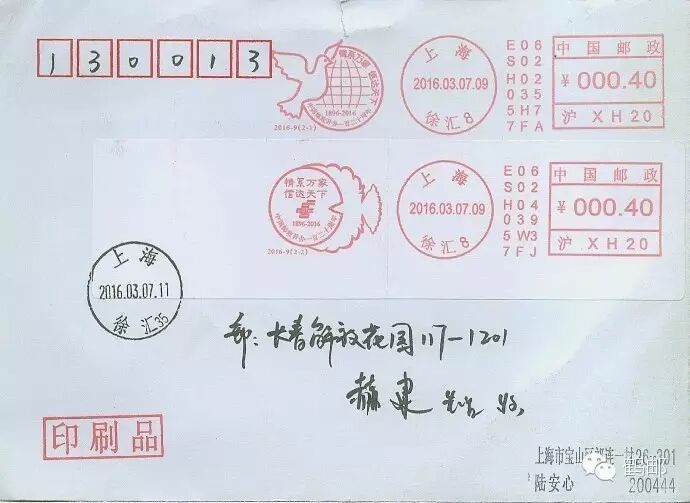 130013
情系万家 信达天下
中国邮政开办一百二十周年
1896-2016
2016-9(2-1)
上海
2016.03.07.09
徐汇8
E06
S02
H02
035
5H7
7FA
中国邮政
¥ 000.40
沪 XH20
情系万家
信达天下
1896-2016
中国邮政开办一百二十周年
2016-9(2-2)
上海
2016.03.07.09
徐汇8
E06
S02
H04
039
5W3
7FJ
中国邮政
¥ 000.40
沪 XH20
上海
2016.03.07.11
徐汇35
邮:长春解放花园117-1201
赫建 先生 收
印刷品
上海市宝山区 一村26-301
陆安心 200444
鹤邮